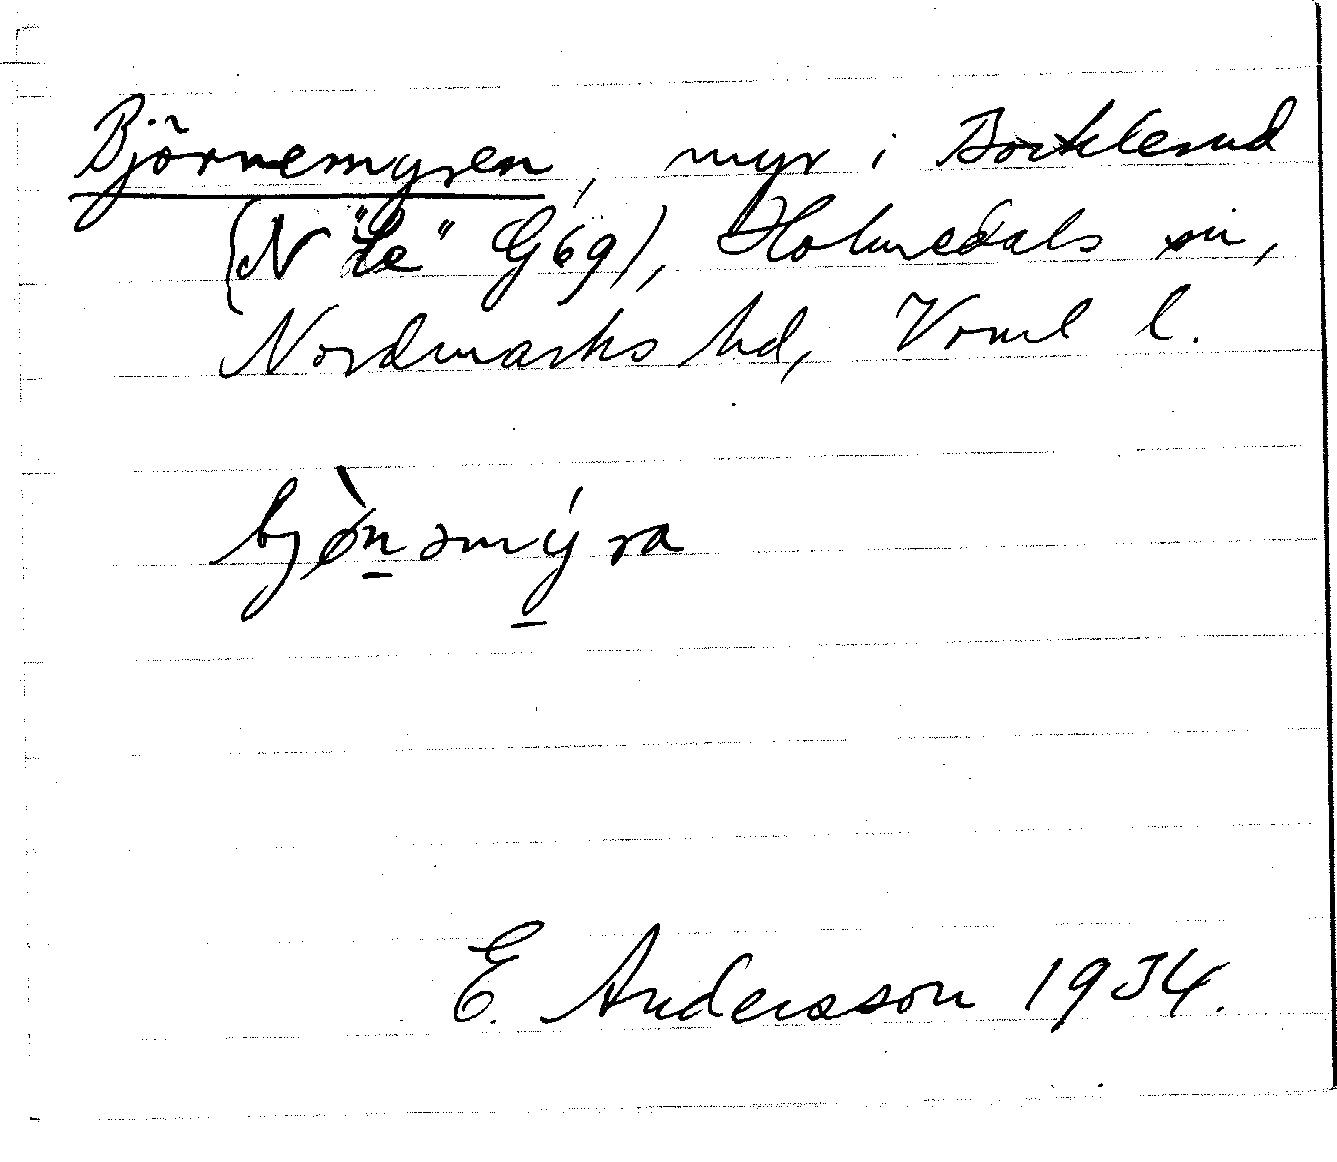 Björnemyren, myr i Bocklerud
(N "Le" G69), Holmedals sn,
Nordmarks hd, Vrml l.
bjø̀nəmýra
E. Andersson 1934.